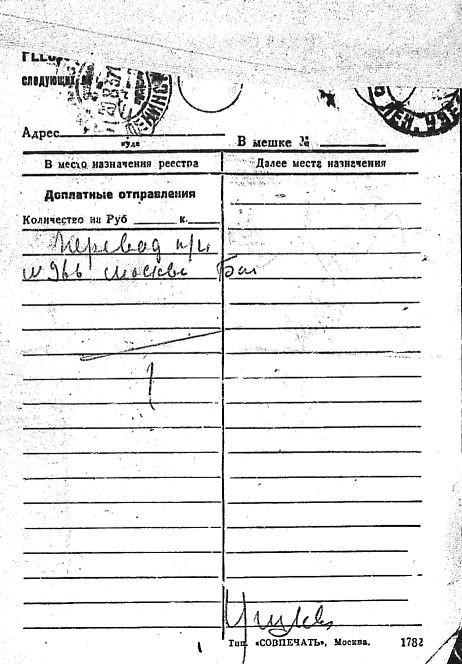 следующих
МИНСК
Адрес
куда
В мешке №
В место назначения реестра
Далее места назначения
Доплатные отправления
Количество на Руб к.
Перевод
№ 966 Москва
Тип. «СОВПЕЧАТЬ», Москва. 1782